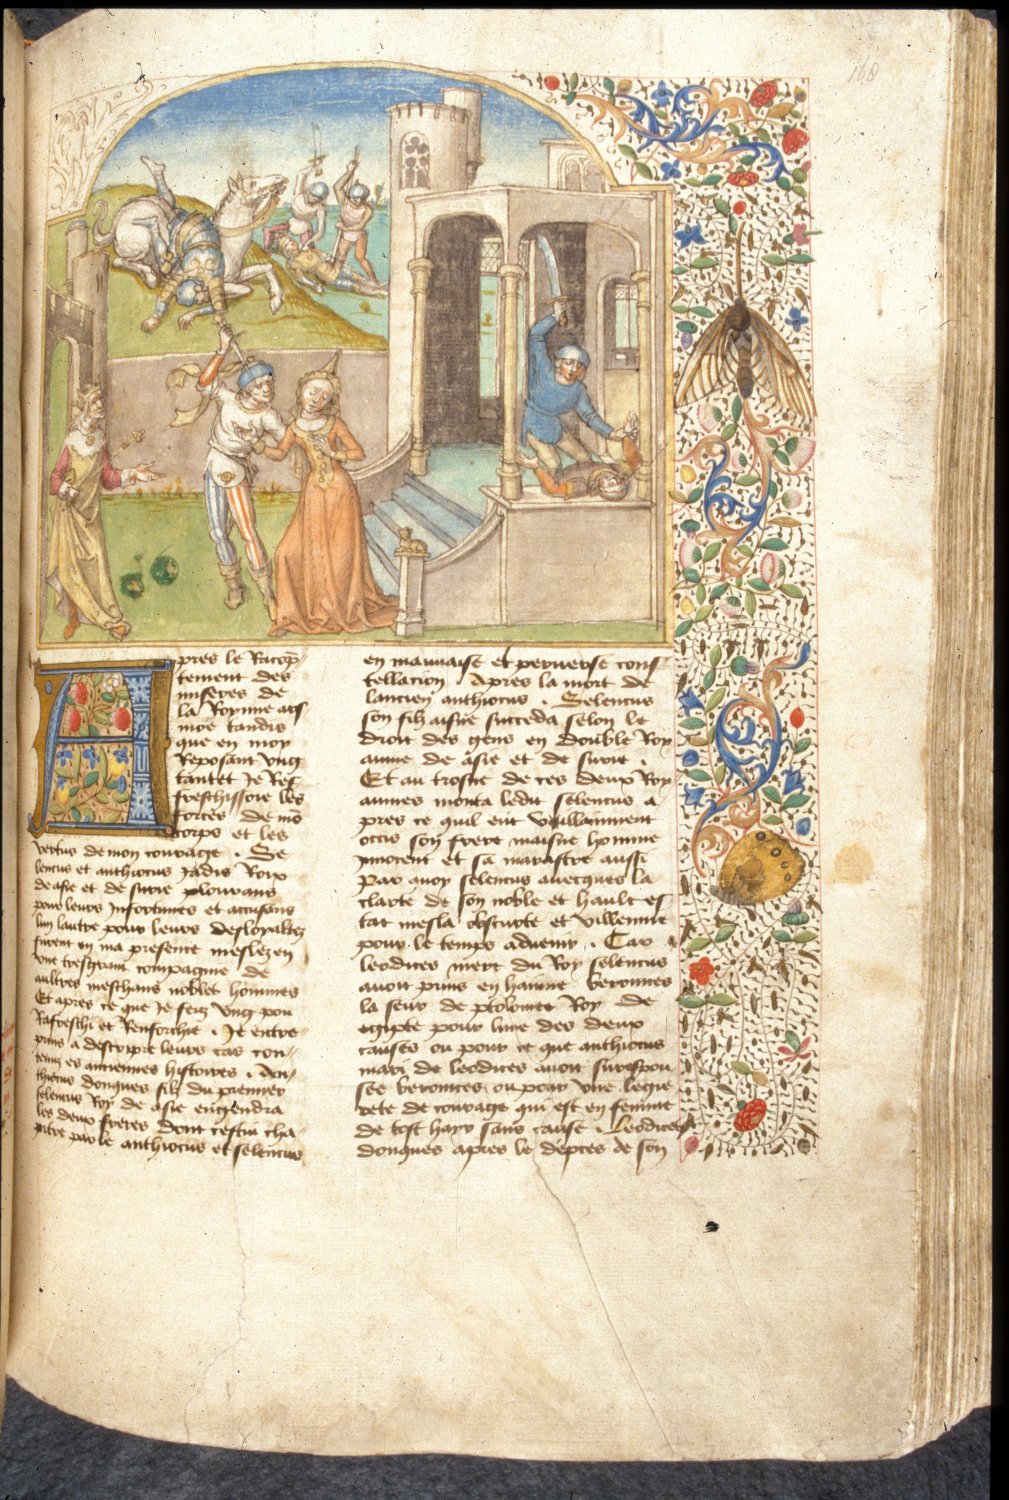 168
Apres le Racop
tement des
miseres de
la Royne ars
moe tandis
que en moy
Reposant ung
tantet Je Res
freschissoie les
forces de mo
corps et les
vertus de mon courage . Se
lencus et anthiocus Jadis Roix
de asie et de surie plourans
pour leurs Infortunes et accusans
lun lautre pour leurs desloyaultez
furent en ma presence meslez en
une tresgrant compagnie de
aultres meschans nobles hommes
Et apres ce que Je feuz ung pou
Rafreschi et Renforchie . Je entre
prins a descripre leurs cas con
tenuz es anciennes histoires . An
thiocus donques filz du premier
selencus Roy de asie engendra
les deux freres dont cestui cha
pitre parle anthiocus et selencus
en mauvaise et perverse cons
tellacion . Apres la mort de
lancien anthiocus . Selencus
son filz aisne succeda selon le
droit des gens en double Roy
aume de asie et de surie .
Et au trosne de ces deux Roy
aumes monta ledit selencus a
pres ce quil eut vaillamment
occis son frere maisne homme
Innocent et sa marastre aussi
Par quoy selencus avecques la
clarte de son noble et hault es
tat mesla obscurte et villennie
pour le temps advenir . Car
leodices mere du Roy selencus
avoit prins en haine beronices
la seur de ptolomee Roy de
egypte pour lune des deux
causes ou pour ce que anthiocus
mari de leodices avoit surespou
see beronices ou pour une legie
rete de courage qui est en femme
de tost hayr sans cause . Leodices
donques apres le deptes de son